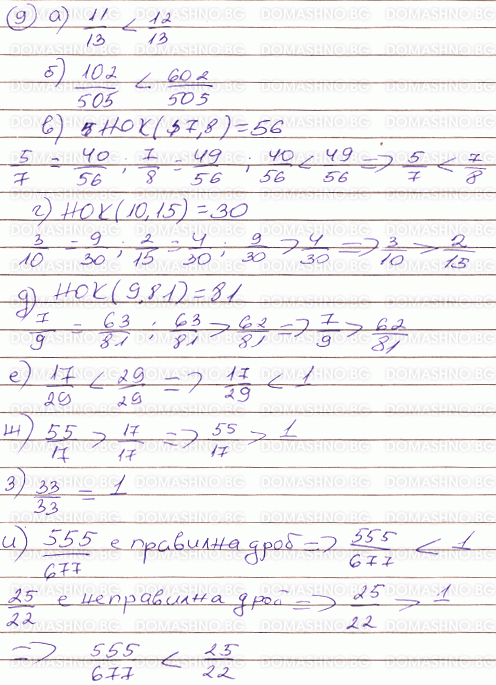 9) а) 11/13 < 12/13
б) 102/505 < 602/505
в) НОК(7,8)=56
5/7 = 40/56 ; 7/8 = 49/56 ; 40/56 < 49/56 => 5/7 < 7/8
г) НОК(10,15)=30
3/10 = 9/30 ; 2/15 = 4/30 ; 9/30 > 4/30 => 3/10 > 2/15
д) НОК(9,81)=81
7/9 = 63/81 ; 63/81 > 62/81 => 7/9 > 62/81
е) 17/29 < 29/29 => 17/29 < 1
ж) 55/17 > 17/17 => 55/17 > 1
з) 33/33 = 1
и) 555/677 е правилна дроб => 555/677 < 1
25/22 е неправилна дроб => 25/22 > 1
=> 555/677 < 25/22
DOMASHNO.BG